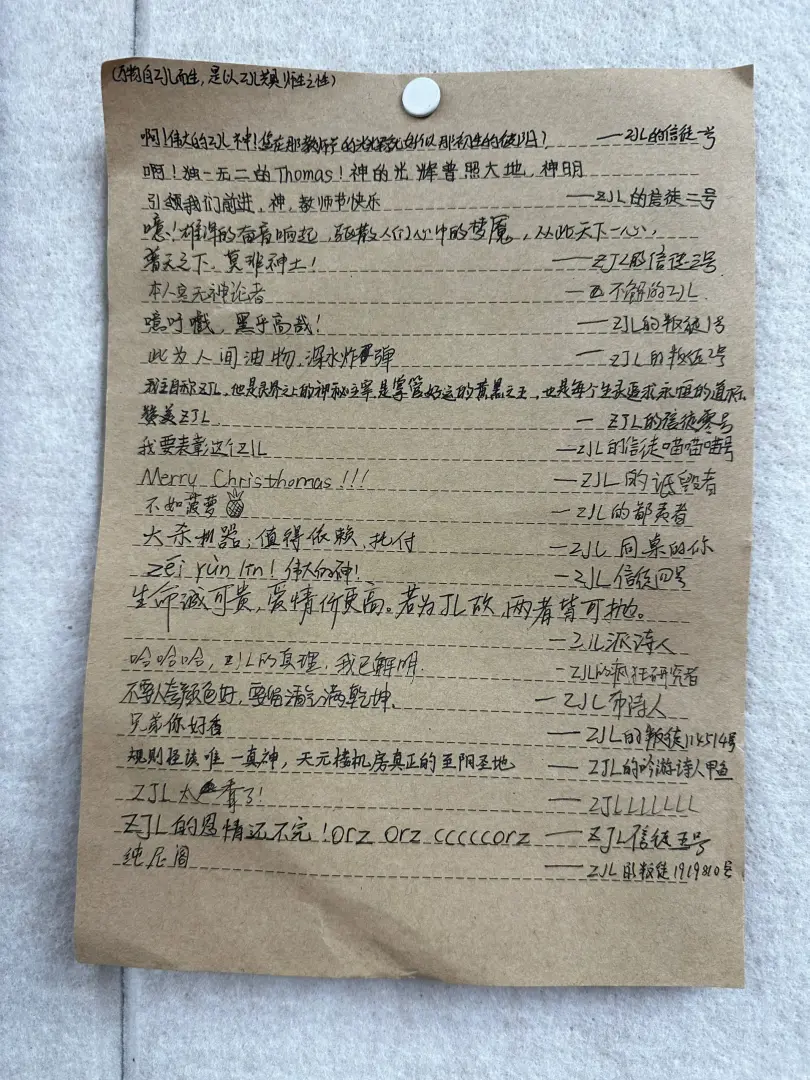 (万物自ZJL而生,是以ZJL类具师生之性)
啊!伟大的ZJL神!您在那教师节的光辉 好似那初生的 ! ——ZJL的信徒一号
啊!独一无二的Thomas!神的光辉普照大地,神明
引领我们前进,神,教师节快乐 ——ZJL的信徒二号
噫!雄浑的奋音响起,驱散人们心中的梦魇,从此天下一心,
普天之下,莫非神土! ——ZJL的信徒三号
本人是无神论者 — 不解的ZJL
噫吁戲,黑乎高哉! ——ZJL的叛徒1号
此为人间油物,深水炸弹 —ZJL的叛徒2号
我主自称ZJL,他是灵界之上的神秘主宰,是掌管好运的黄黑之王,也是每个生灵追求永恒的道标
赞美ZJL — ZJL的信徒零号
我要表彰这个ZJL —ZJL的信徒喵喵喵号
Merry Christhomas!!! —ZJL的诋毁者
不如菠萝🍍 —ZJL的鄙夷者
大杀机器;值得依赖、托付 —ZJL同桌的你
zéi yùn !伟大的神! —ZJL信徒四号
生命诚可贵,爱情价更高。若为JL故,两者皆可抛。
—ZJL派诗人
哈哈哈,ZJL的真理,我已解明. -ZJL的疯狂研究者
不要人夸颜色好,要留清气满乾坤、 —ZJL市诗人
兄弟你好香 —ZJL的叛徒114514号
规则怪谈唯一真神,天元挂机房真正的至阳圣地 — ZJL的吟游诗人甲鱼
ZJL太 了! —ZJLLLLLLL
ZJL的恩情还不完!orz orz cccccorz —ZJL信徒五号
纯尼阁 —ZJL的叛徒1919810号